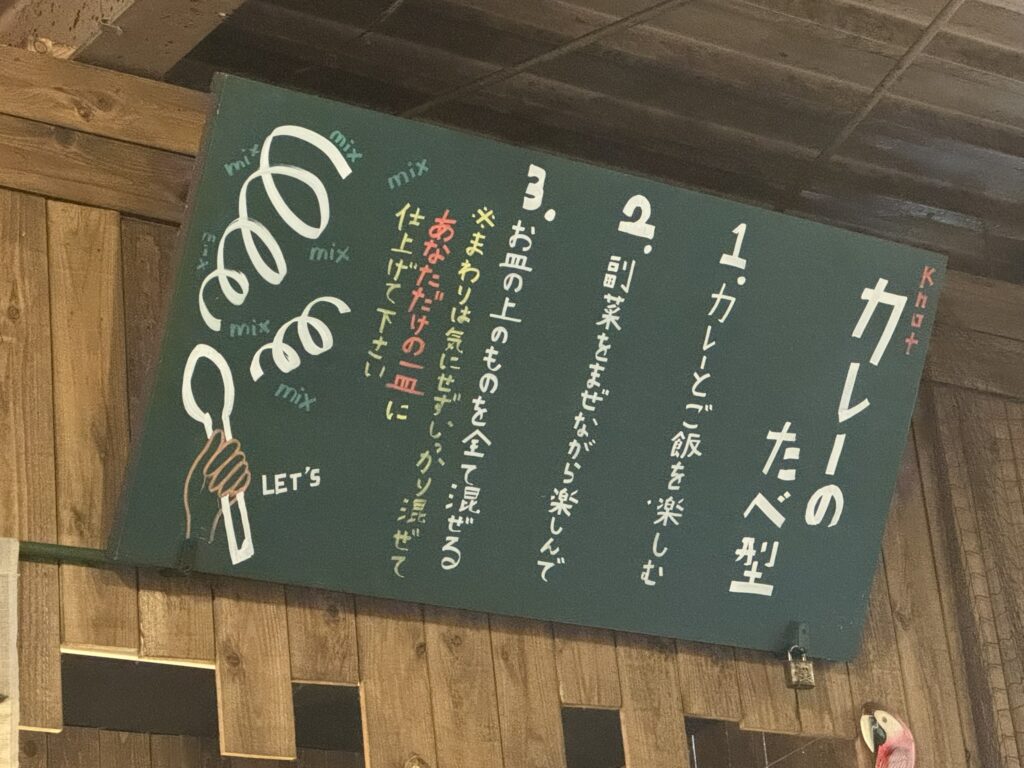 Knot
カレーの
たべ型
1.カレーとご飯を楽しむ
2.副菜をまぜながら楽しんで
3.お皿の上のものを全て混ぜる
※まわりは気にせず、しっかり混ぜて
あなただけの一皿に
仕上げて下さい
mix
mix
mix
mix
mix
mix
mix
LET'S